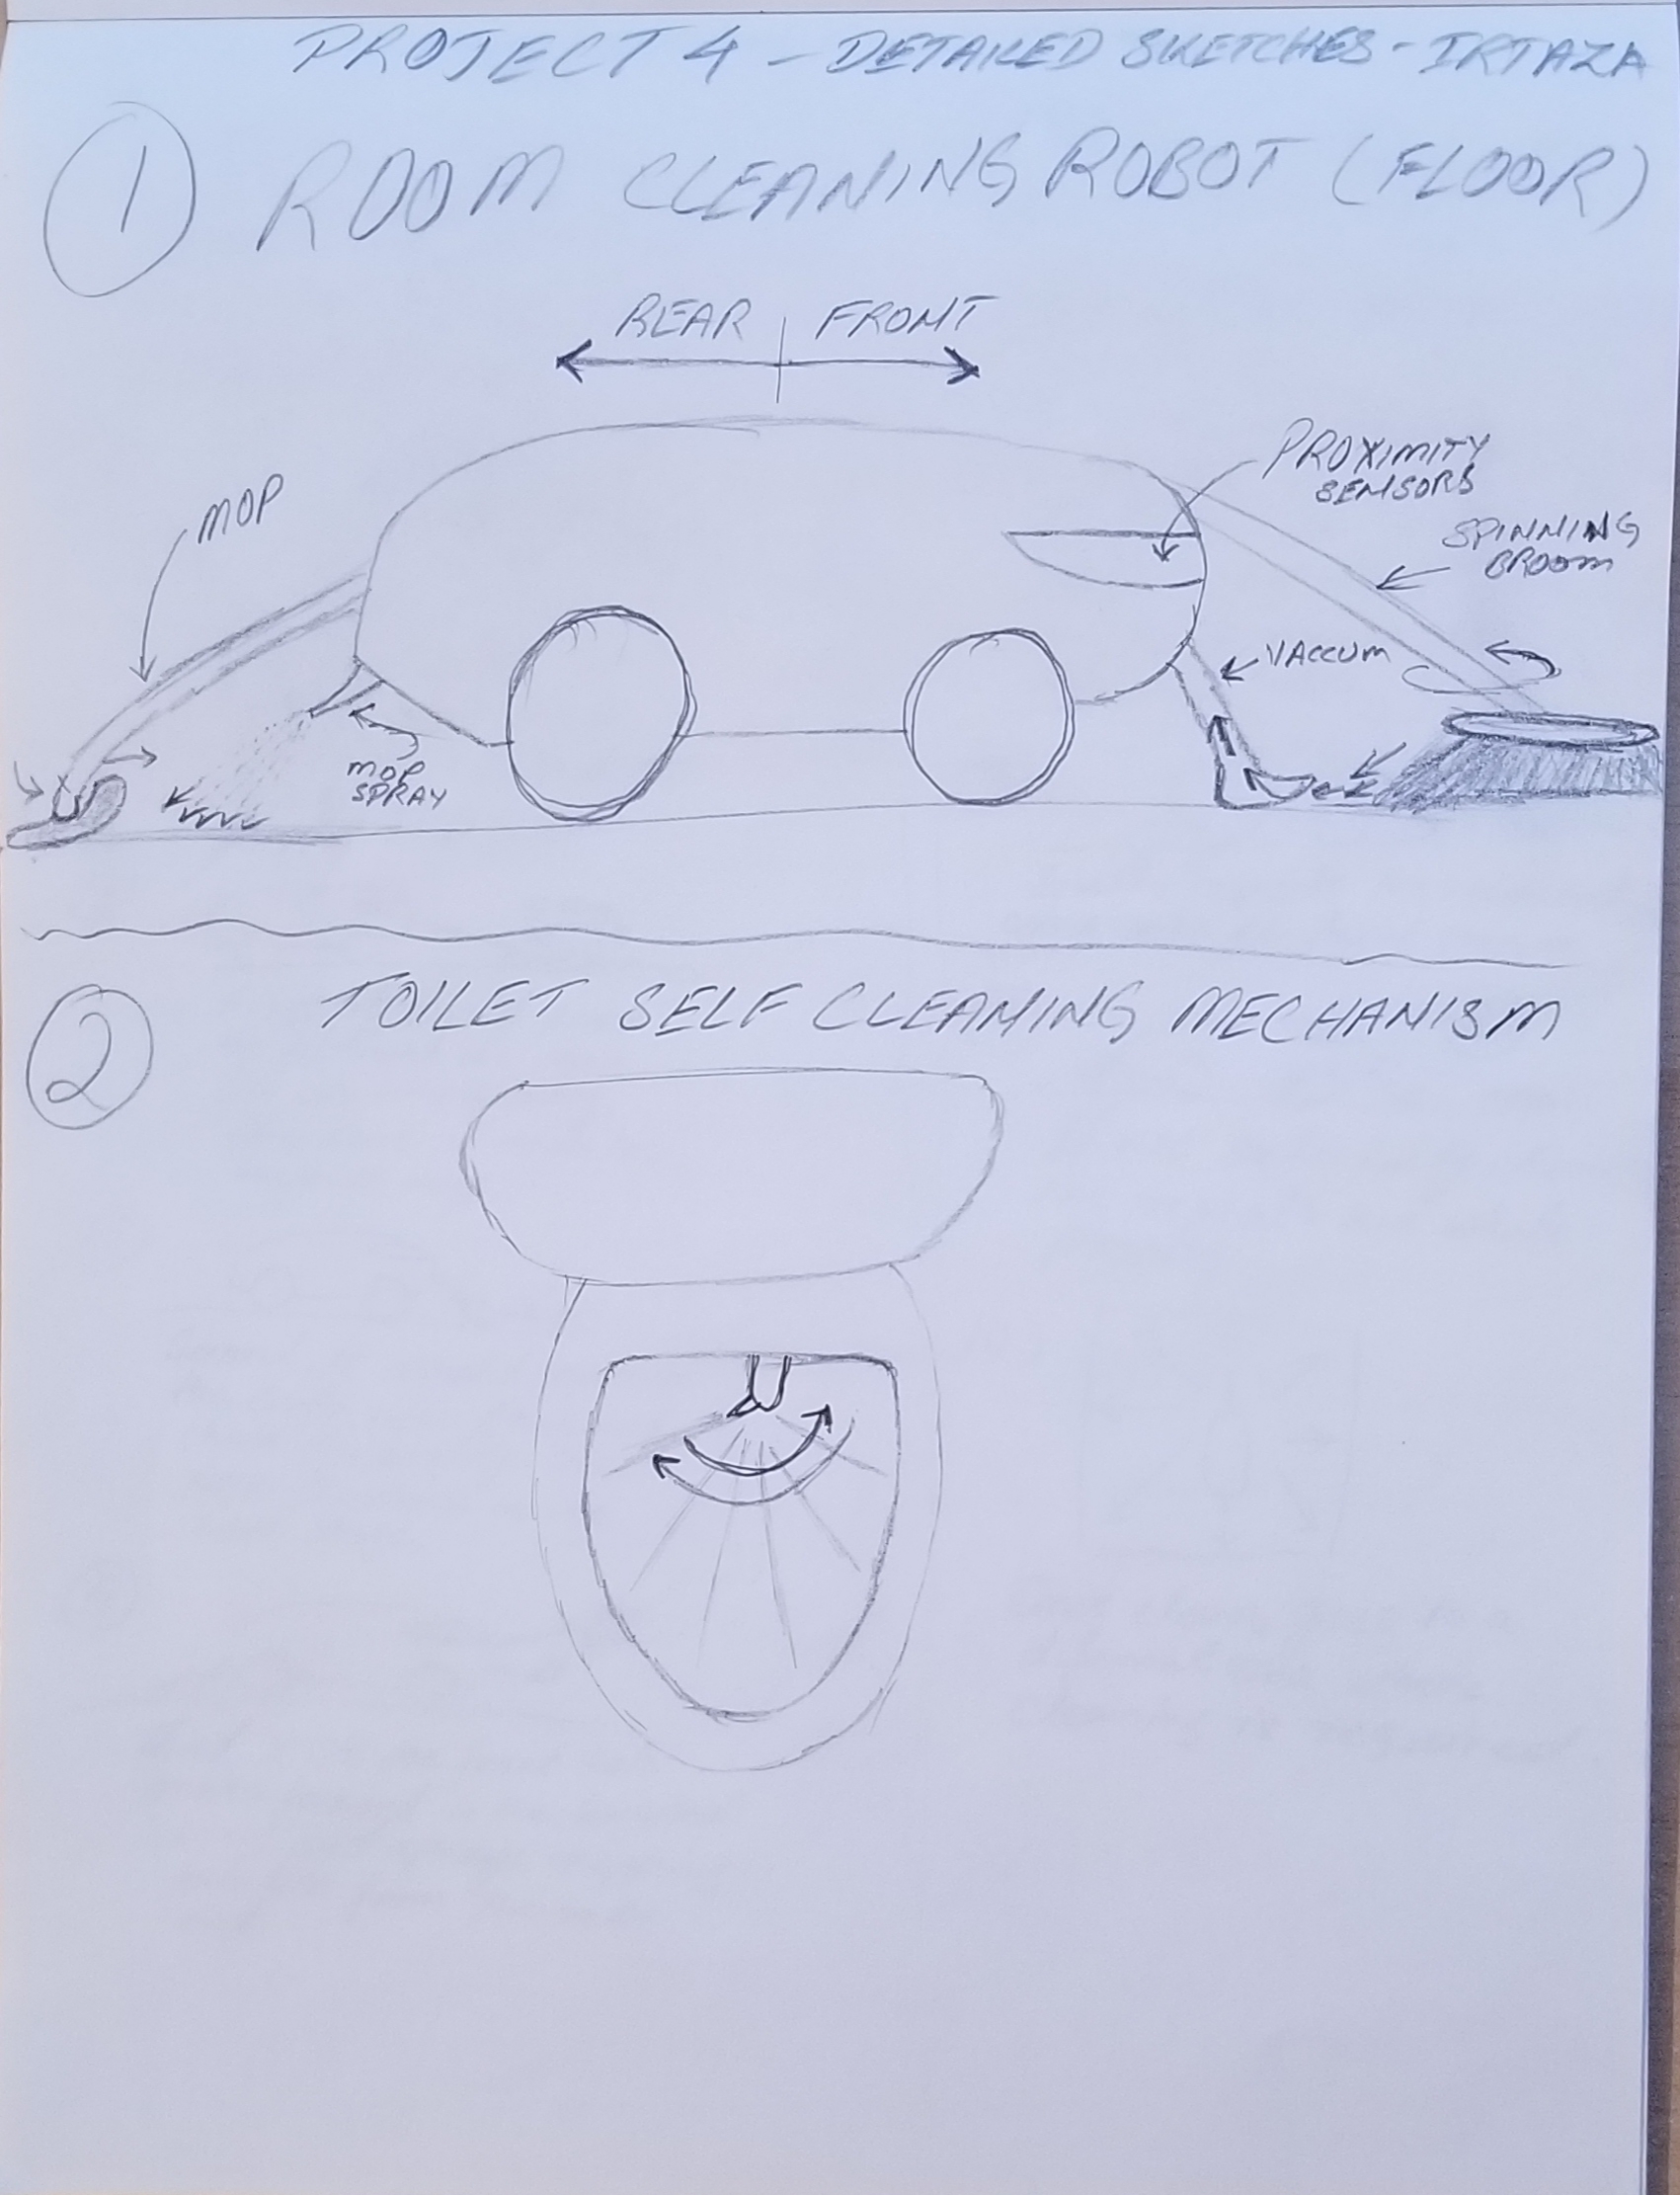 PROJECT 4 - DETAILED SKETCHES - IRTAZA
1 ROOM CLEANING ROBOT (FLOOR)
REAR FRONT
PROXIMITY
SENSORS
MOP
SPINNING
BROOM
VACCUM
MOP
SPRAY
2 TOILET SELF CLEANING MECHANISM